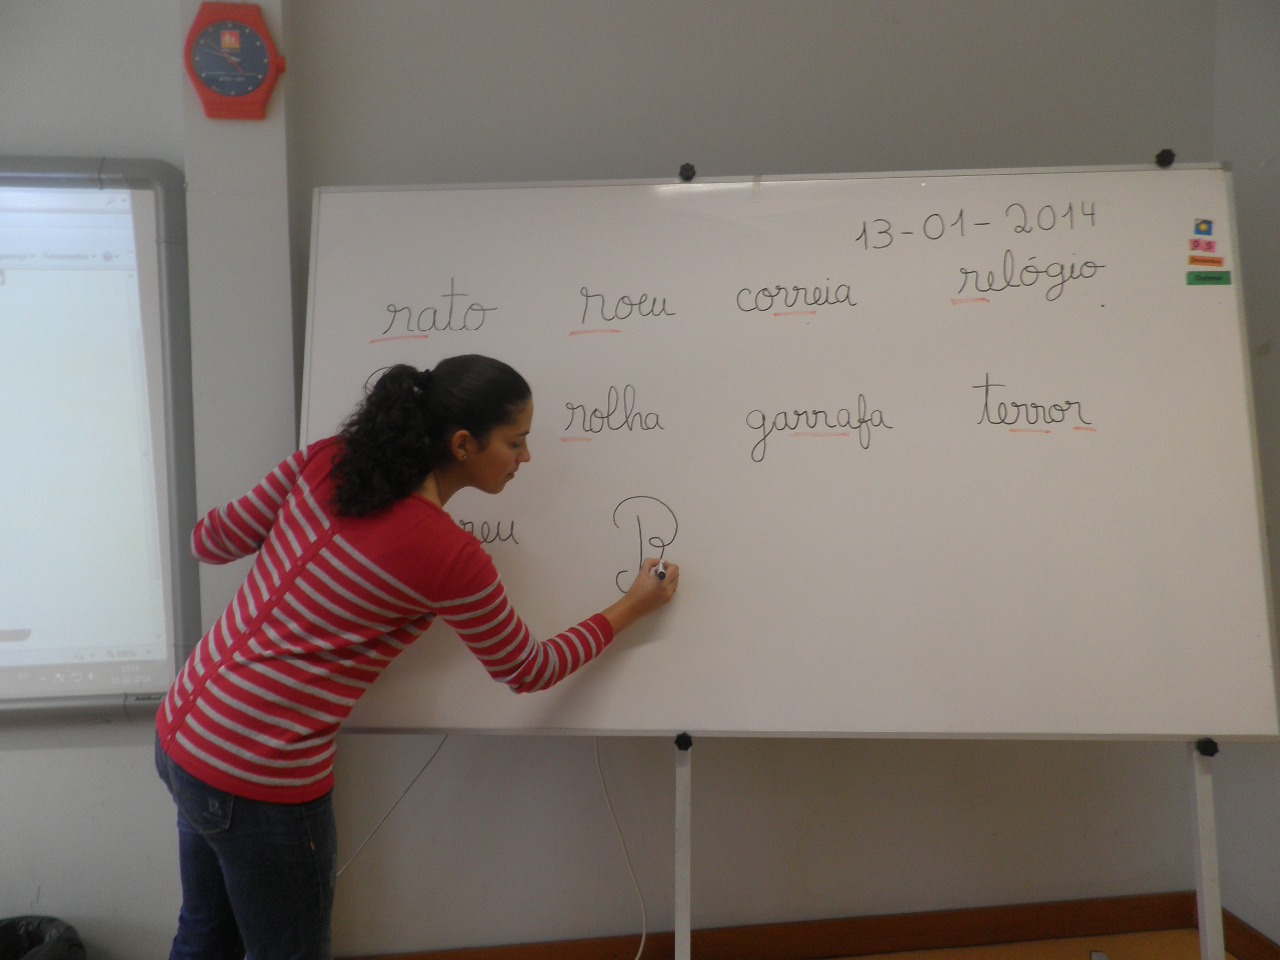 13-01-2014
rato roeu correia relógio
rolha garrafa terror
reu R